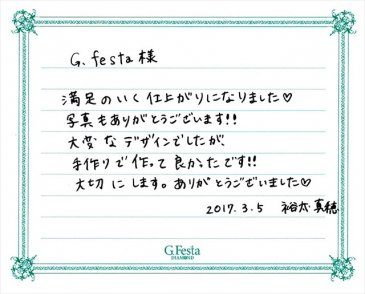 G. festa 様
満足のいく仕上がりになりました♡
写真もありがとうございます!!
大変なデザインでしたが、
手作りで作って良かったです!!
大切にします。ありがとうございました♡
2017. 3. 5 裕太 真穂
G.Festa
DIAMOND